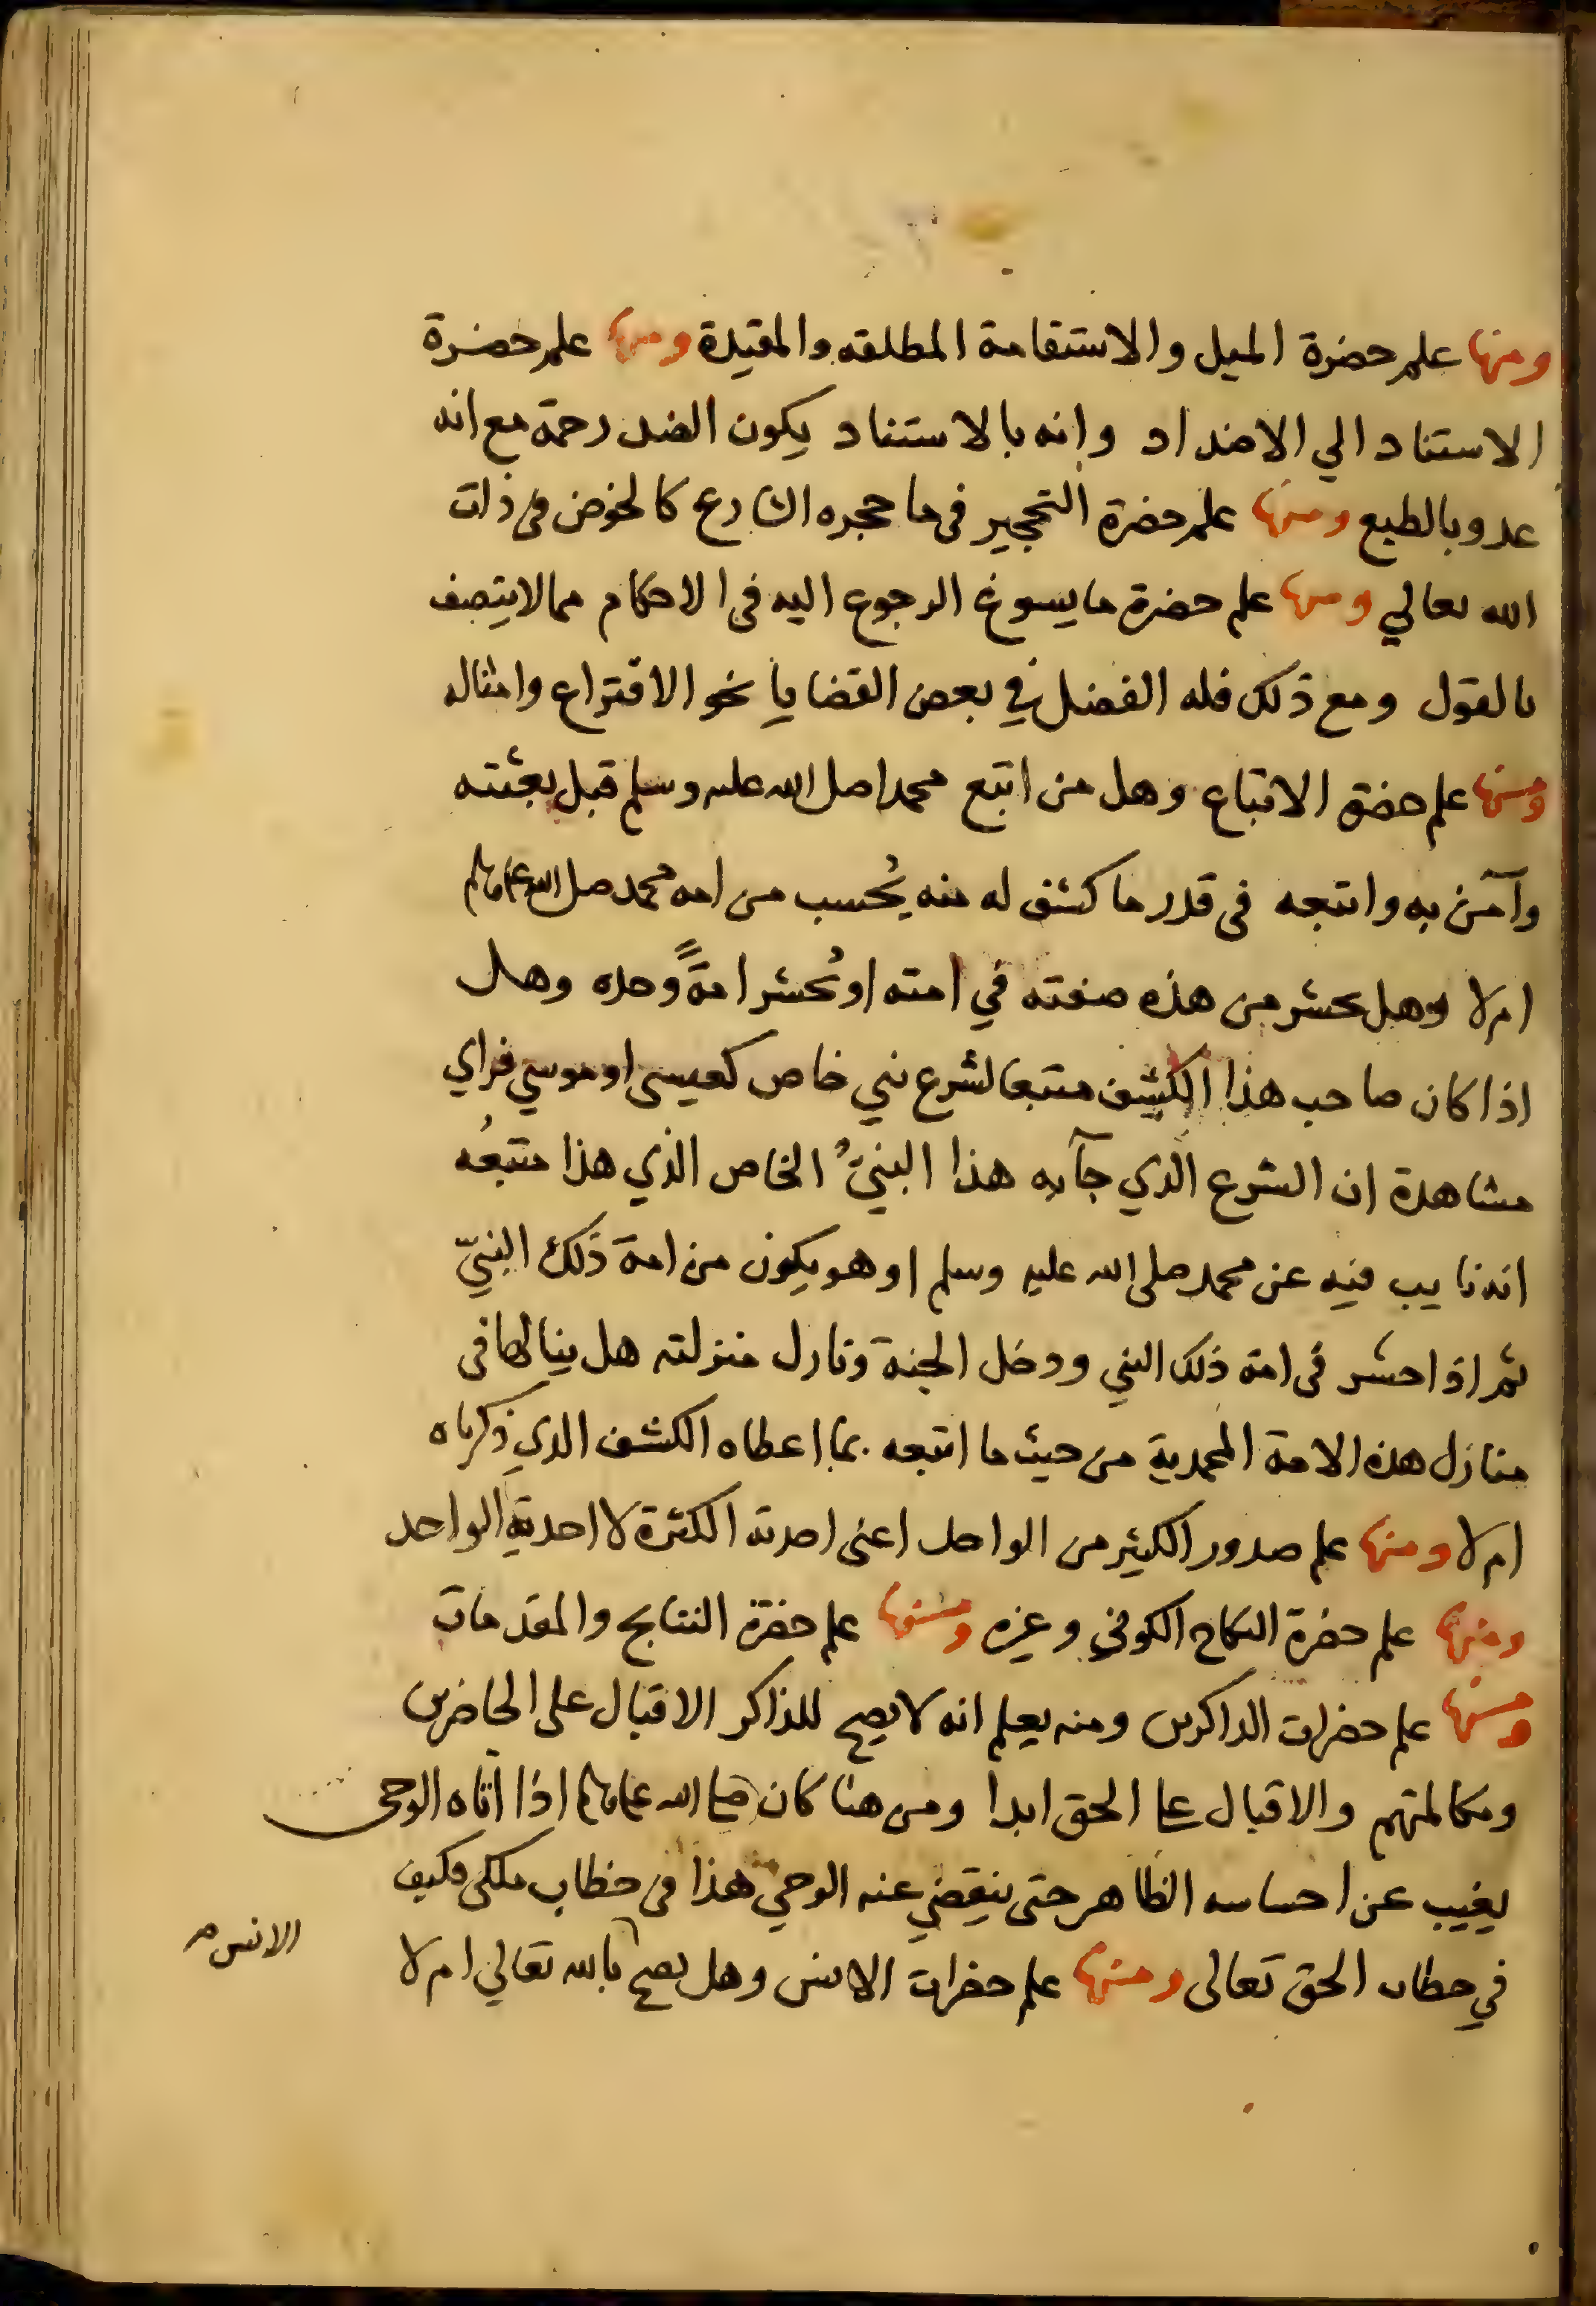 ومنها علم حضرة الميل والاستقامة المطلقه والمقيدة ومنها علم حضرة
الاستناد الي الاضداد وانه بالاستناد يكون الضد رحمة مع انه
عدو بالطبع ومنها علم حضرة التحجير فى ما حجره الشارع كالخوض فى ذات
الله تعالي ومنها علم حضرة ما يسوغ الرجوع اليه فى الاحكام مما لا يتصف
بالقول ومع ذلك فله الفصل في بعض القضايا نحو الاقتراع وامثاله
ومنها علم حضرة الاتباع وهل من اتبع محمدا صلى الله عليه وسلم قبل بعثته
وآمن به واتبعه فى قدر ما كشف له منه يُحسب من امه محمد صلى الله عليه وسلم
ام لا وهل يحشر من هذه صفته في امته او يُحشر امةً وحده وهل
اذا كان صاحب هذا الكشف متبعا لشرع نبي خاص كعيسى او موسي فراي
مشاهدة ان الشرع الذي جآ به هذا النبيُّ الخاص الذي هذا متبعُه
انه نايب فيه عن محمد صلى الله عليه وسلم او هو يكون من امة ذلك النبيّ
ثم اذا حشر فى امة ذلك النبي ودخل الجنة ونازل منزلته هل ينالها فى
منازل هذه الامة المحمدية من حيث ما اتبعه بما اعطاه الكشف الذي ذكرناه
ام لا ومنها علم صدور الكثير من الواحد اعنى احدية الكثرة لا احدية الواحد
ومنها علم حضرة النكاح الكوني وغيره ومنها علم حضرة النتايج والمقدمات
ومنها علم حضرات الذاكرين ومنه يعلم انه لا يصح للذاكر الاقبال على الحاضرين
ومكالمتهم والاقبال على الحق ابدا ومن هنا كان صلى الله عليه وسلم اذا اتاه الوحى
يغيب عن احساسه الظاهر حتى ينقضي عنه الوحي هذا فى خطاب ملكى فكيف
في خطاب الحق تعالى ومنها علم حضرات الانس وهل يصح بالله تعالي ام لا
الانس صح